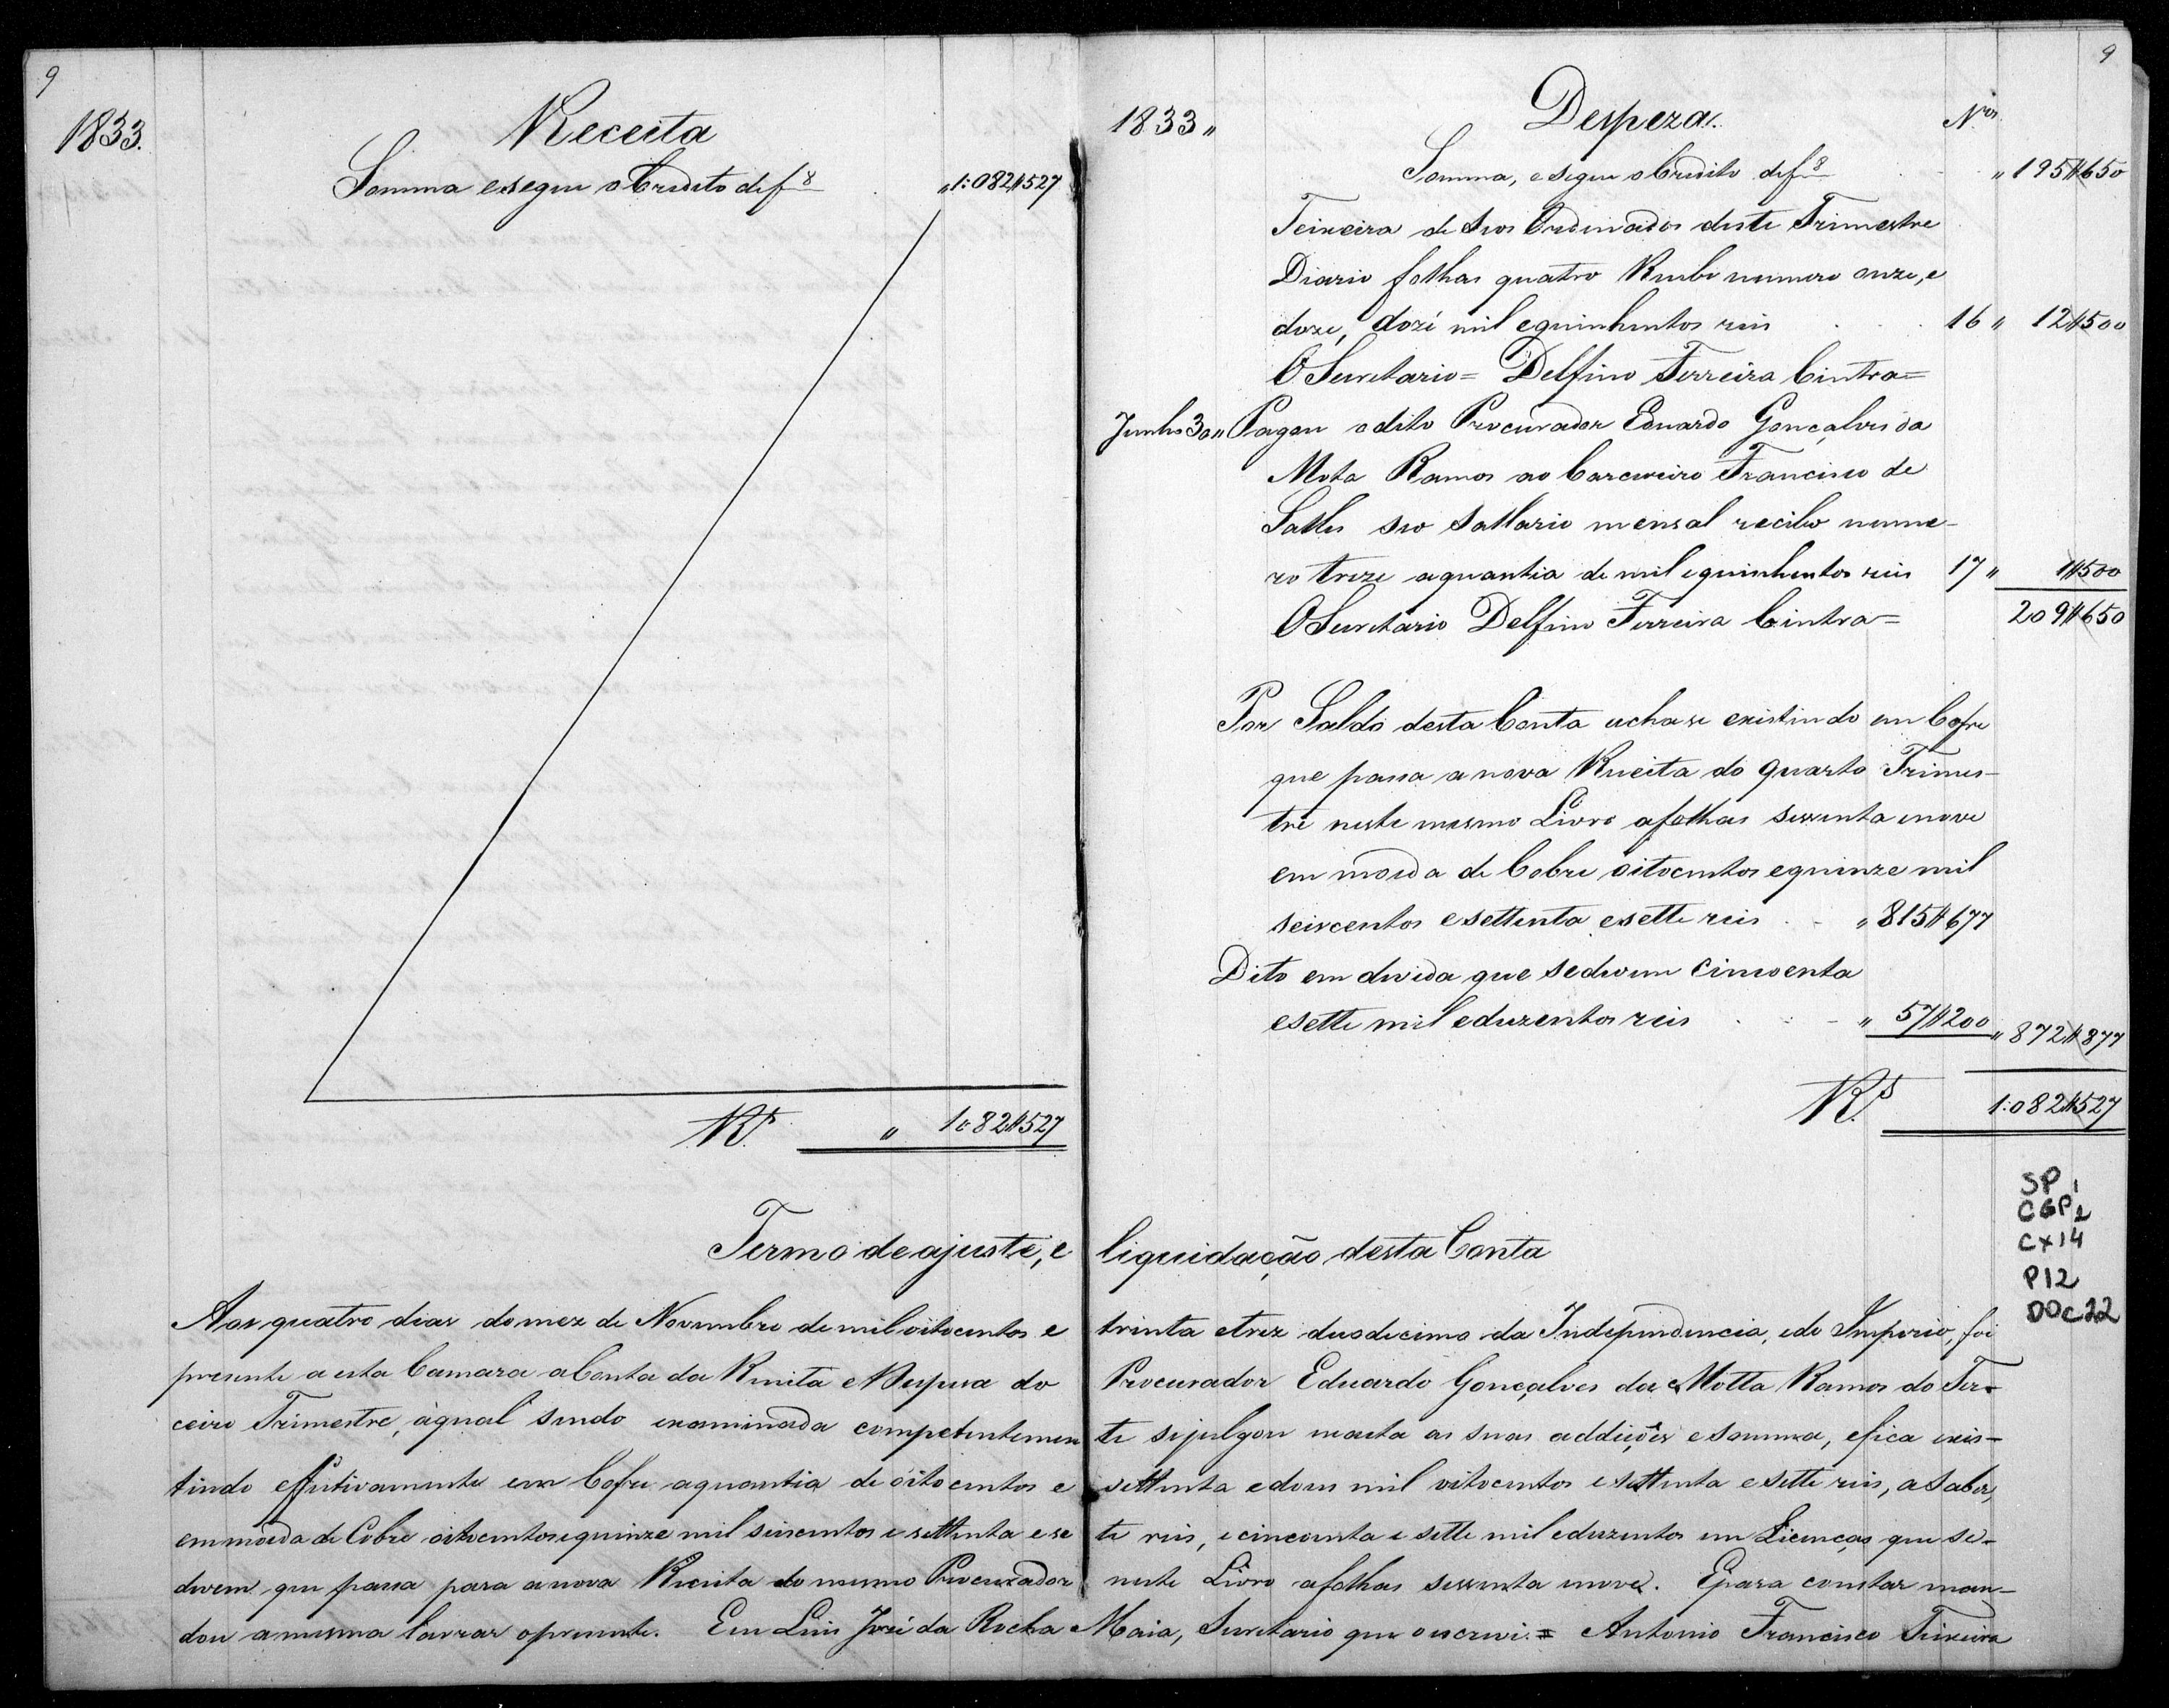 9
1833.
Receita
Somma e segue o Credito de f 8 " 1:082#527
Rs. " 1:082#527
9
1833 "
Despeza.
Nos
Somma, e segue o Credito de f 8 " 195#650
Teixeira de seos Ordenados deste Trimestre
Diario folhas quatro Recibo numero onze, e
doze, doze mil equinhentos reis 16 " 12#500
O Secretario = Delfino Ferreira Cintra =
Junho 30 " Pagou o dito Procurador Eduardo Gonçalves da
Mota Ramos ao Carcereiro Francisco de
Salles seo sallario mensal recibo nume-
ro treze a quantia de mil equinhentos reis 17 " 1#500
O Secretario Delfino Ferreira Cintra = 209#650
Por Saldo desta Conta acha se existindo em Cofre
que passa a nova Receita do quarto Trimes-
tre neste mesmo Livro afolhas sessenta enove
em moeda de Cobre oitocentos equinze mil
seiscentos esettenta esette reis " 815#677
Dito em divida que sedevem cincoenta
esette mil eduzentos reis " 57#200 " 872#877
Rs. 1:082#527
SP 1
CGP 2
CX14
P12
DOC22
Termo de ajuste, e liquidação desta Conta
Aos quatro dias do mez de Novembro de mil oitocentos e trinta etrez duodecimo da Independencia, edo Imperio, foi
presente a esta Camara a Conta da Receita e Despeza do Procurador Eduardo Gonçalves da Motta Ramos do Ter-
ceiro Trimestre, aqual sendo examinada competentemen te sejulgou exacta as suas addições esomma, efica exis-
tindo effectivamente em Cofre aquantia de oitocentos e settenta edous mil oitocentos esettenta esette reis, asaber,
em moeda de Cobre oitocentos equinze mil seiscentos e settenta ese te reis, ecincoenta e sette mil eduzentos em Licenças que se-
devem que passa para anova Receita do mesmo Procurador neste Livro afolhas sessenta enove. Epara constar man-
dou a mesma lavrar opresente. Eu Luis José da Rocha Maia, Secretario que o escrevi = Antonio Francisco Teixeira